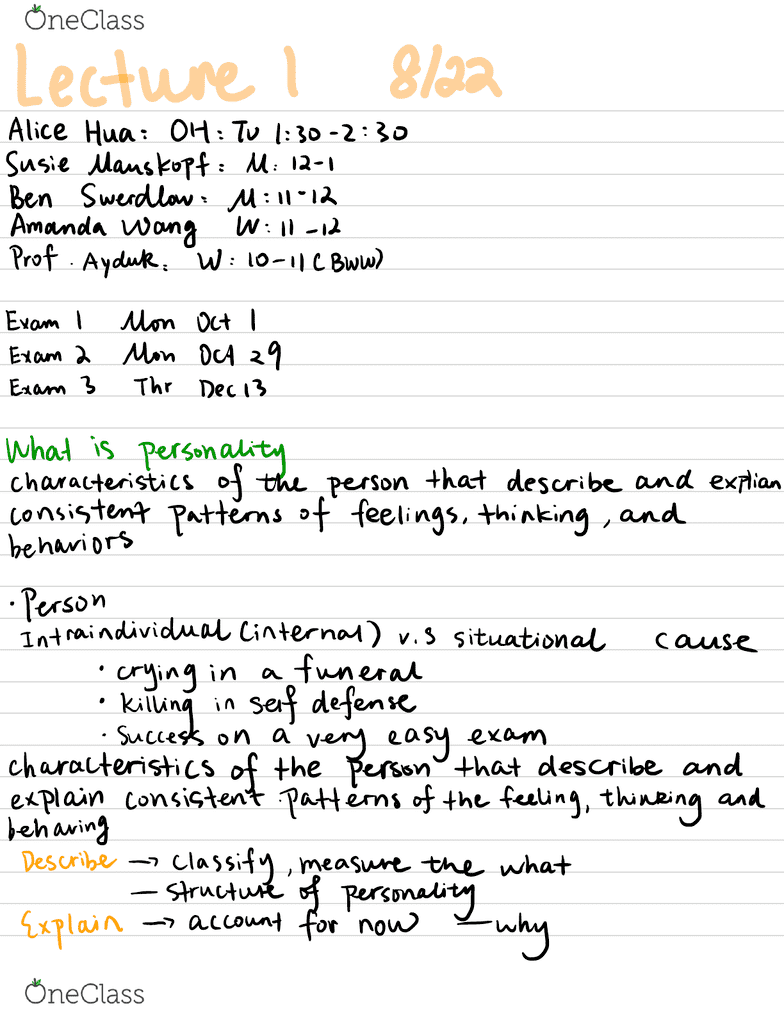 OneClass
Lecture 1 8/22
Alice Hua: OH: Tu 1:30-2:30
Susie Manskopf: M: 12-1
Ben Swerdlow: M: 11-12
Amanda Wang W: 11-12
Prof. Ayduk: W: 10-11 (BWW)
Exam 1 Mon Oct 1
Exam 2 Mon Oct 29
Exam 3 Thr Dec 13
What is personality
characteristics of the person that describe and explian
consistent patterns of feelings, thinking, and
behaviors
· Person
Intraindividual (internal) v.s situational cause
· crying in a funeral
· killing in self defense
· Success on a very easy exam
characteristics of the person that describe and
explain consistent patterns of the feeling, thinking and
behaving
Describe → classify, measure the what
— structure of personality
Explain → account for now — why
OneClass